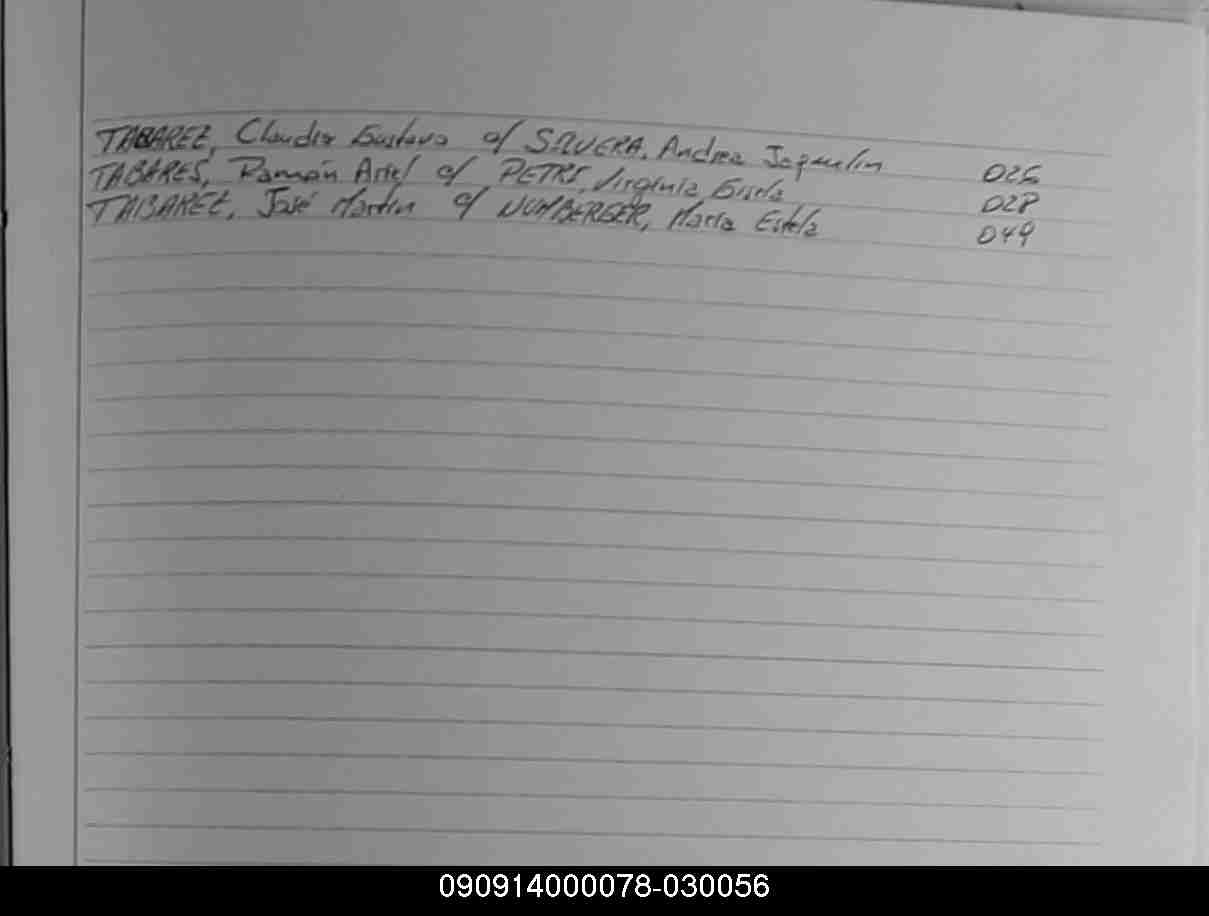 TABAREZ, Claudio Gustavo c/ SILVERA, Andrea Jaquelin 026
TABARES, Ramón Ariel c/ PETRI, Virginia Gisela 028
TABAREZ, José Martin c/ NUMBERGER, María Estela 049
090914000078-030056